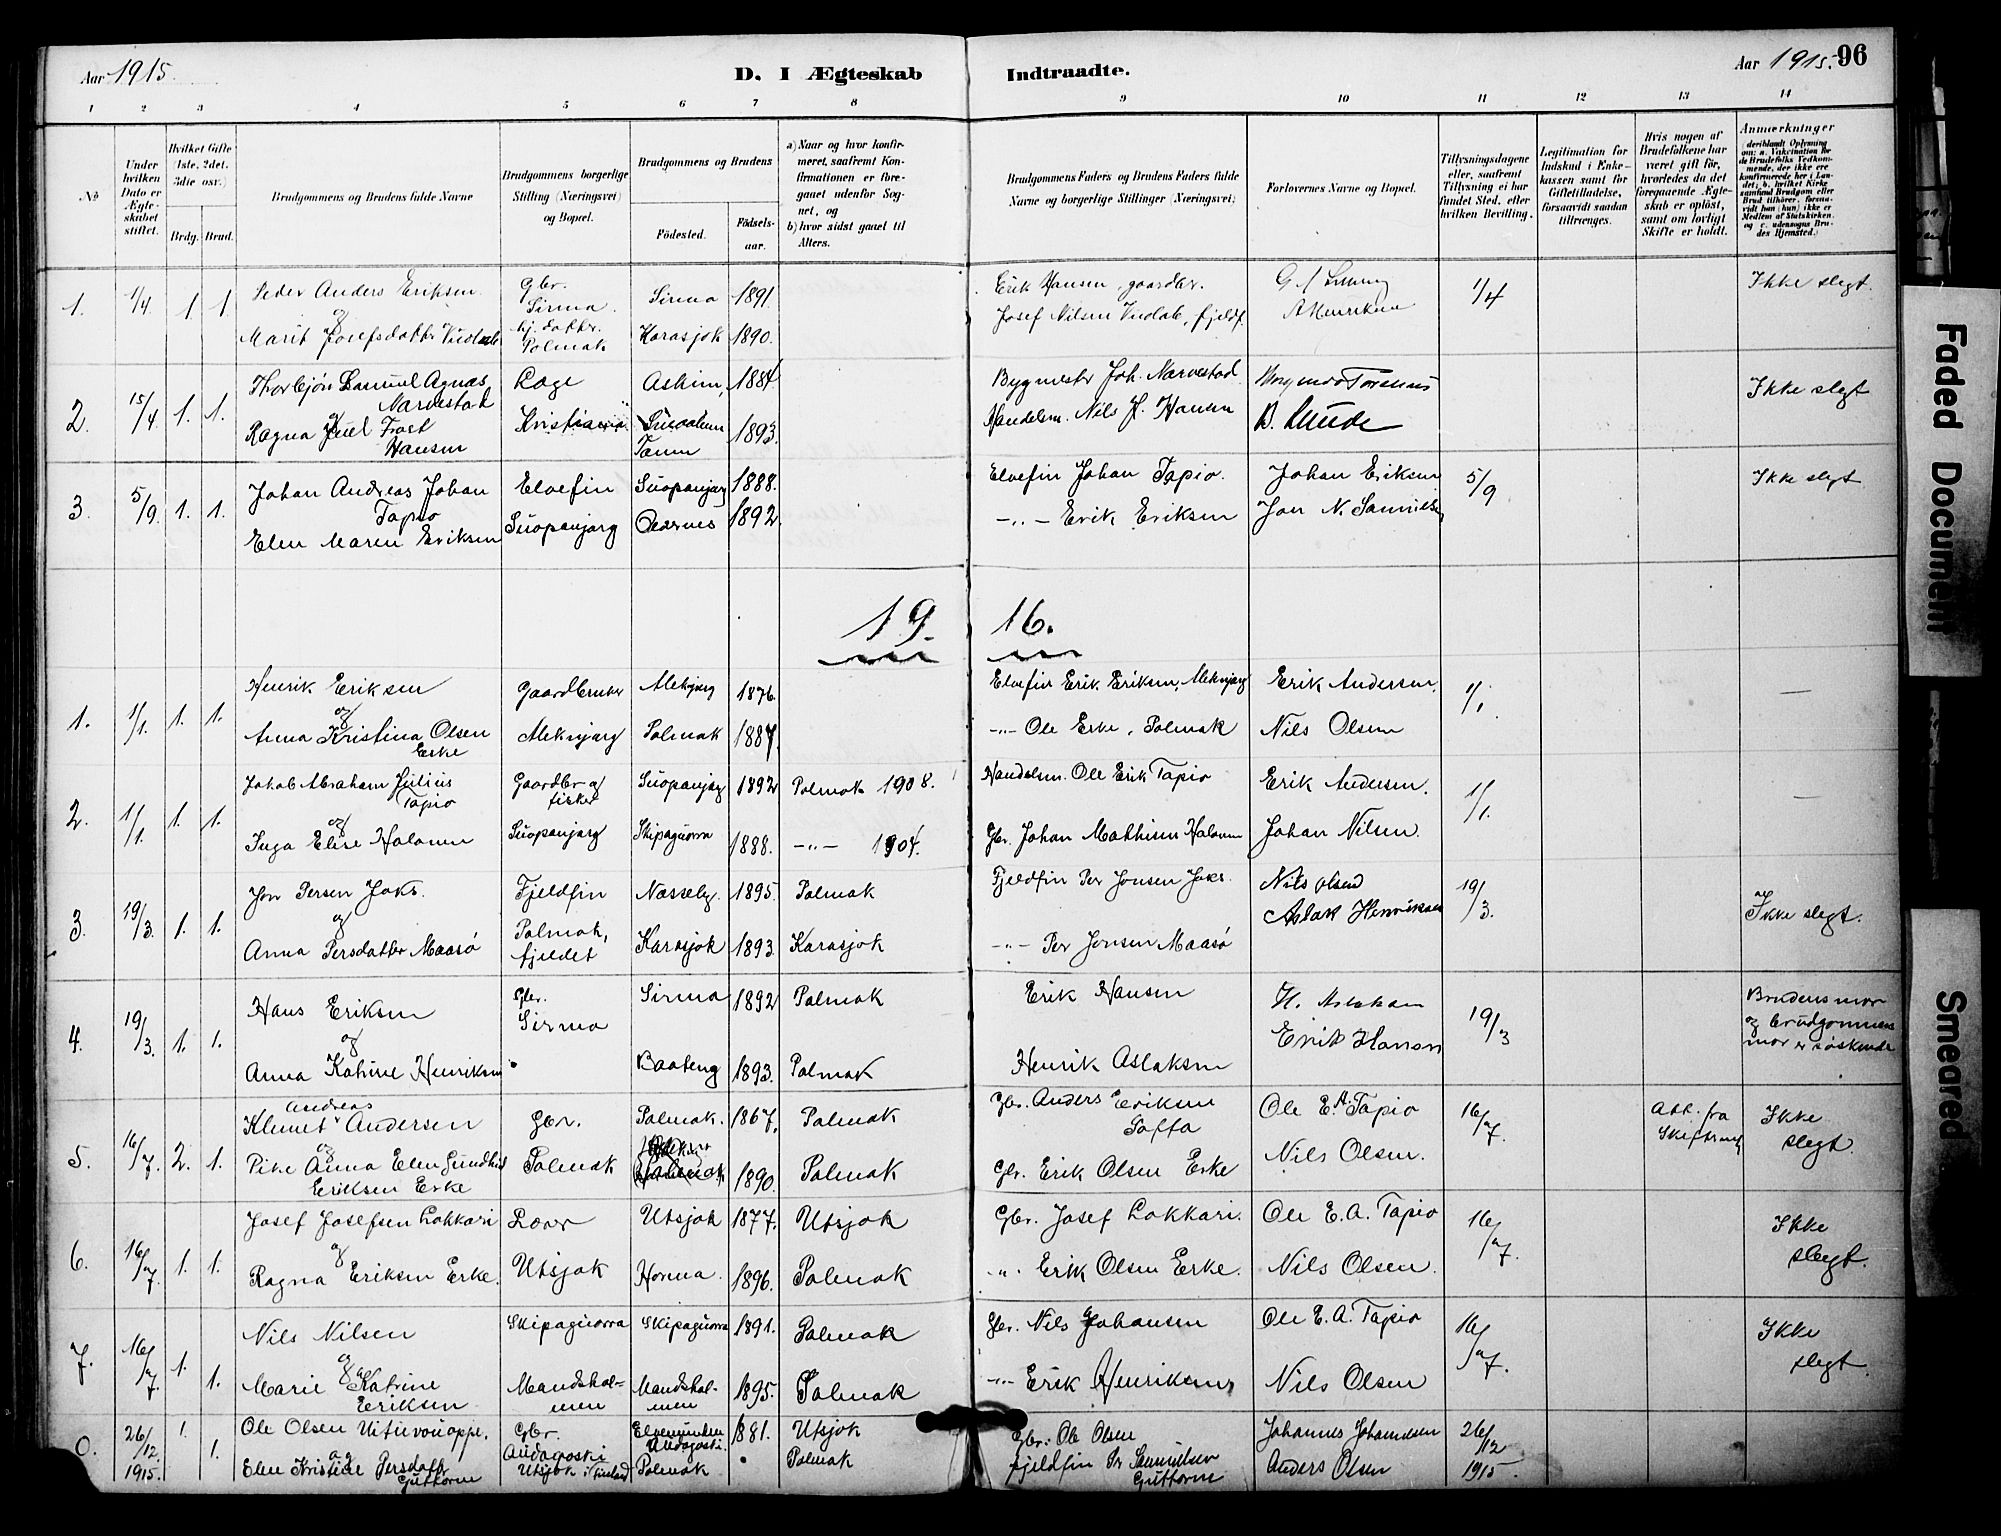 Aar 1915.
D. I Ægteskab
Indtraadte.
Aar 1915.
96
1 2 3 4 5 6 7 8 9 10 11 12 13 14
No.
Under hvilken Dato er Ægteskabet stiftet.
Hvilket Gifte (1ste, 2det, 3die osv.)
Brdg. Brud.
Brudgommens og Brudens fulde Navne
Brudgommens borgerlige Stilling (Næringsvei) og Bopæl.
Brudgommens og Brudens
Födested.
Födsels-aar.
a) Naar og hvor konfirmeret, saafremt Konfirmationen er foregaaet udenfor Sognet, og
b) hvor sidst gaaet til Alters.
Brudgommens Faders og Brudens Faders fulde Navne og borgerlige Stillinger (Næringsvei)
Forlovernes Navne og Bopæl.
Tillysningsdagene eller, saafremt Tillysning ei har fundet Sted, efter hvilken Bevilling.
Legitimation for Indskud i Enkekassen samt for Giftetilladelse, forsaavidt saadan tiltrænges.
Hvis nogen af Brudefolkene har været gift för, hvorledes da det foregaaende Ægteskab er oplöst, samt om lovligt Skifte er holdt.
Anmærkninger
deriblandt Oplysning om: a. Vakcination for de Brudefolks Vedkommende, der ikke ere konfirmerede her i Landet; b. hvilket Kirkesamfund Brudgom eller Brud tilhörer, forsaavidt han (hun) ikke er Medlem af Statskirken, og c. udensogns Brudes Hjemsted.
1. 1/4 1. 1. Peder Anders Eriksen Gbr. Sirma. Sirma 1891. Erik Hansen, gaardbr. 1/4 Ikke slegt.
og
Marit Josefsdatter hj. datter. Polmak Karasjok 1890. Josef Nilsen, fjeldf. A Henriksen
2. 15/4 1. 1. Thorbjörn Samuel Agnæs Narvestad Læge Askim, 1884 Bygmester Joh. Narvestad Ikke slegt
og
Ragna Juul Frost Hansen Kristiania Tanen 1893. Handelsm. Nils H. Hansen B. Lunde
3. 5/9. 1. 1. Johan Andreas Johan Tapio Elvefin Suopanjarg 1888. Elvefin Johan Tapio. Johan Eriksen 5/9 Ikke slegt
Elen Maren Eriksen Suopanjarg 1892. -"- Erik Eriksen Jon N. Samuelsen
19. 16.
1. 1/1. 1. 1. Henrik Eriksen Gaardbruker Aleknjarg 1876. Elvefin Erik Eriksen, Aleknjarg Erik Andersen. 1/1. —
og
Anna Kristina Olsen Erke Aleknjarg Polmak 1887. -"- Ole Erke, Polmak Nils Olsen
2. 1/1. 1. 1. Jakob Abraham Julius Tapio Gaardbr og fisker Suopanjarg 1892 Polmak 1908. Handelsm. Ole Erik Tapio Erik Andersen. 1/1. —
og
Inga Elise Halonen Suopanjarg Skipaguorra 1888. -"- 1904. Gbr. Johan Mathisen Halonen Johan Nilsen.
3. 19/3. 1. 1. Jon Persen Joks. Fjeldfin Nesseby. 1895. Polmak Fjeldfin Per Jonsen Joks. Nils Olsen 19/3. Ikke slegt.
og
Anna Persdatter Maasö Polmak, fjeldet Karasjok 1893 Karasjok -"- Per Jonsen Maasö Aslak Henriksen
4. 19/3. 1. 1. Hans Eriksen Gbr. Sirma Sirma 1892 Polmak Erik Hansen H. Aslaksen 19/3 Brudens mor og brudgommens mor er söskende
og
Anna Katrine Henriksen Baateng 1893. Polmak Henrik Aslaksen Erik Hansen
5. 16/7. 2. 1. Klemet Andreas Andersen Gbr. Polmak. 1867. Polmak Gbr. Anders Eriksen Tofta Ole E. A. Tapio 16/7. Att. fra Skifteret Ikke slegt.
og
Pike Anna Elen Gundhild Eriksen Erke Polmak 1890. Polmak Gbr. Erik Olsen Erke Nils Olsen.
6. 16/7. 1. 1. Josef Josefsen Lokkari Utsjok 1877. Utsjok Gbr. Josef Lokkari. Ole E. A. Tapio 16/7. Ikke slegt.
og
Ragna Eriksen Erke. Utsjok Horma. 1896. Polmak -"- Erik Olsen Erke. Nils Olsen.
7. 16/7. 1. 1. Nils Nilsen Skipaguorra Skipaguorra 1891. Polmak Gbr. Nils Johansen Ole E. A. Tapio 16/7. Ikke slegt.
og
Marie Katrine Eriksen Mandsholmen Mandsholmen 1895. Polmak -"- Erik Henriksens Nils Olsen
0. 26/12. 1915. 1. 1. Ole Olsen Gbr. 1881. Utsjok Gbr. Ole Olsen Johannes Johannesen 26/12 1915.
og
Elen Kristine Persdatter Guttorm Utsjok i Finland Polmak Polmak fjeldfin Pr Samuelsen Guttorm Anders Olsen
Faded Document
Smeared